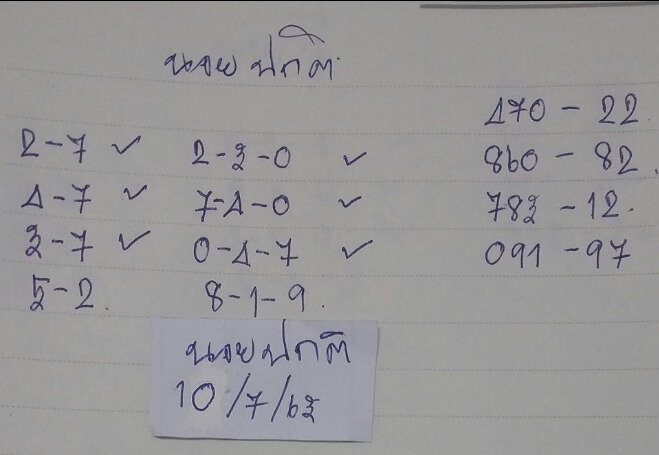 นายปกติ
470 - 22.
2-7 ✓ 2-3-0 ✓ 860 - 82.
4-7 ✓ 7-4-0 ✓ 783 - 12.
3-7 ✓ 0-4-7 ✓ 091 - 97
5-2. 8-1-9.
นายปกติ
10/7/63